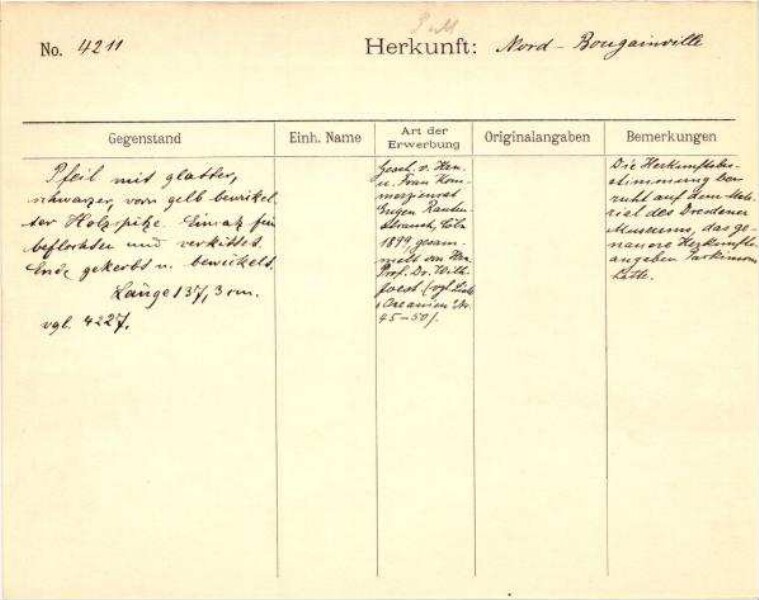 No. 4211
Herkunft: Nord-Bougainville
Gegenstand
Einh. Name
Art der Erwerbung
Originalangaben
Bemerkungen
Pfeil mit glatter,
schwarzer, vorn gelb bewickel
ter Holzspitze. Einsatz fein
beflochten und verkittet.
Ende gekerbt u. bewickelt.
Länge 137,3 cm.
vgl. 4227.
Gesch. v. Hrn.
u. Frau Kom-
merzienrat
Eugen Rauten-
strauch, Cöln
1899, gesam-
melt von Hrn.
Prof. Dr. Wilh.
Joest (vgl. Liste
Oceanien Nr.
45-50).
Die Herkunftsbe-
stimmung be
ruht auf dem Mate-
rial des Dresdener
Museums, das ge-
nauere Herkunfts-
angaben Parkinsons